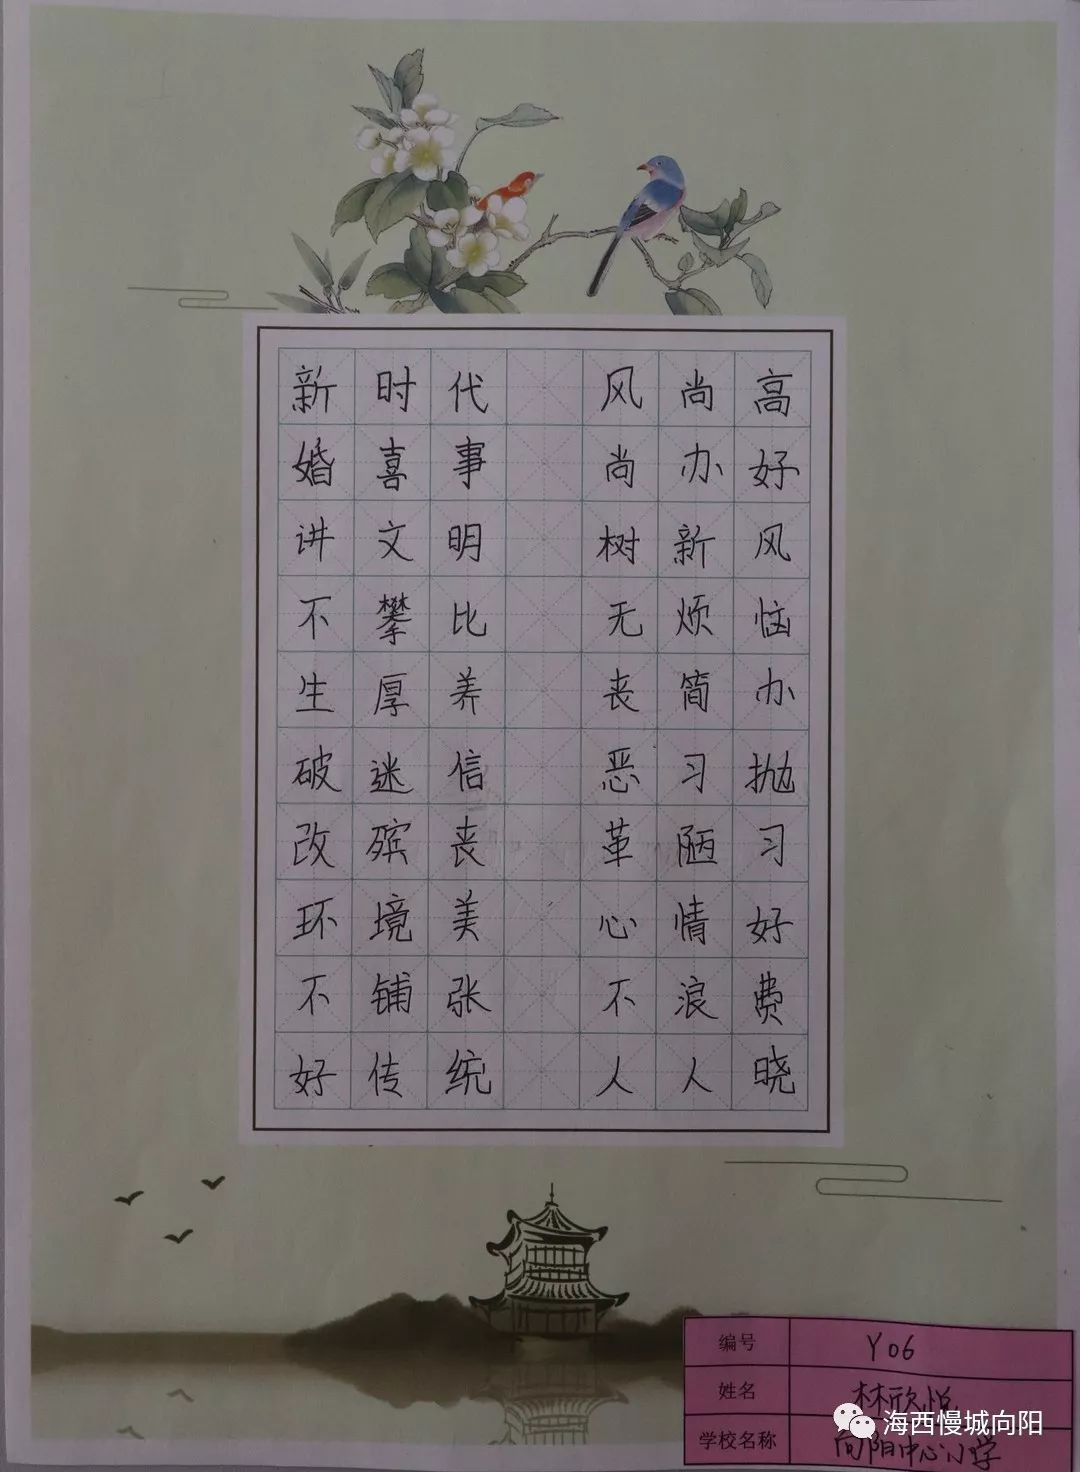 新时代 风尚高
婚喜事 尚办好
讲文明 树新风
不攀比 无烦恼
生厚养 丧简办
破迷信 恶习抛
改殡丧 革陋习
环境美 心情好
不铺张 不浪费
好传统 人人晓
编号 Y06
姓名 林欣悦
学校名称 向阳中心小学
海西慢城向阳